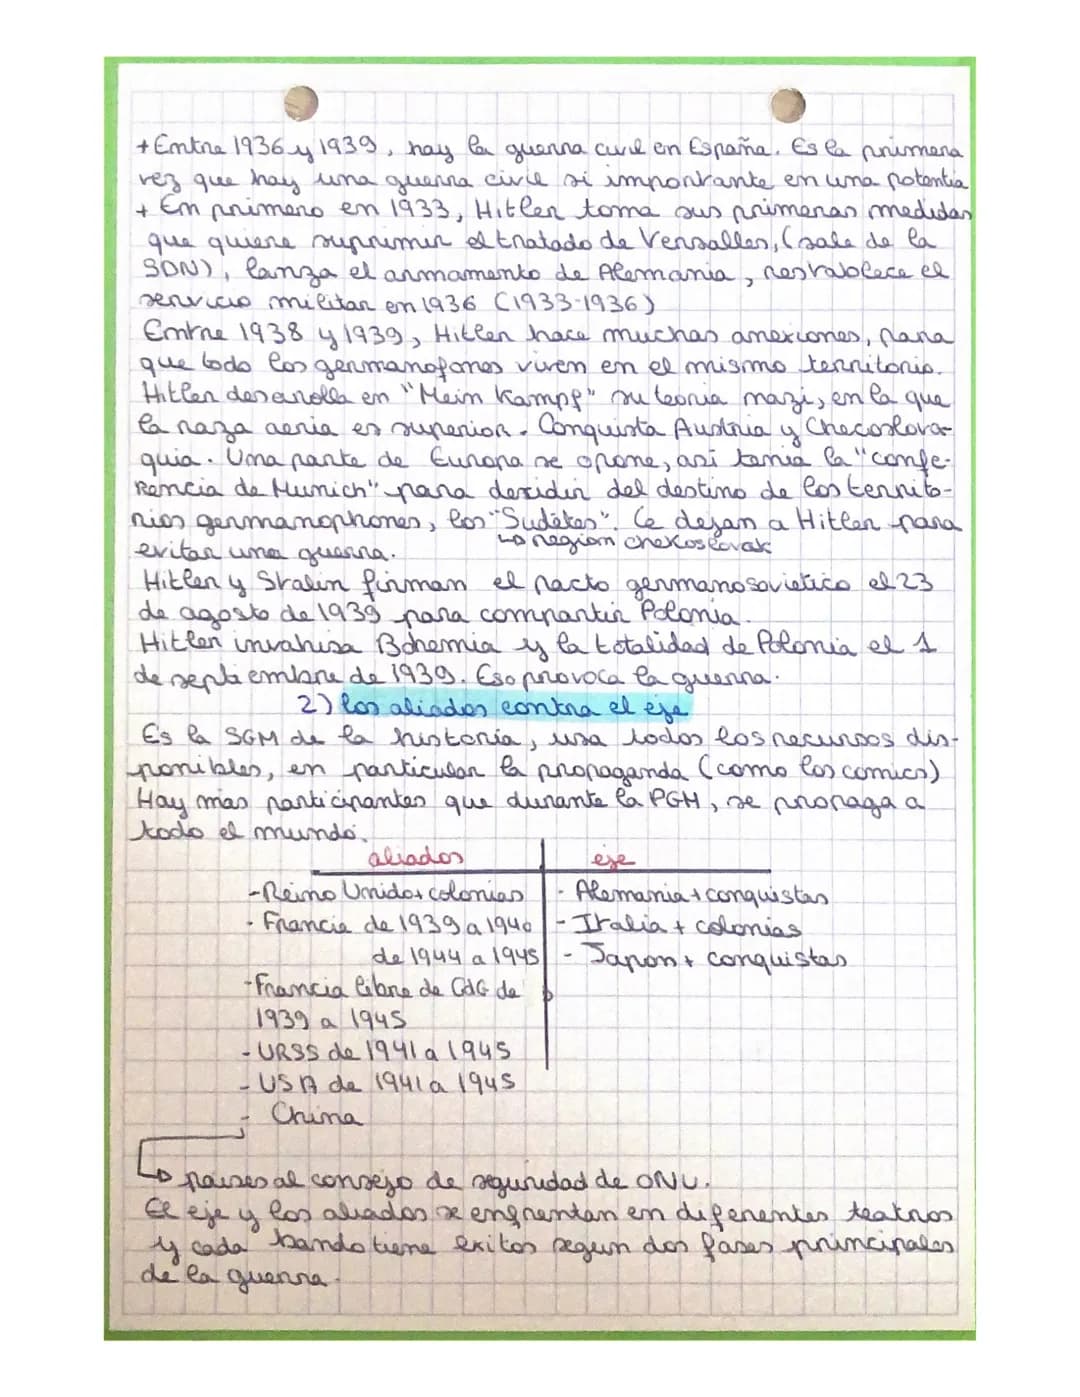 + Entre 1936 y 1939, hay la guerra civil en España. Es la primera
vez que hay una guerra civil si importante en una potentia
+ En primero en 1933, Hitler toma sus primeras medidas
que quiere suprimir el tratado de Versalles, (sale de la
SDN), lanza el armamento de Alemania, restablece el
servicio militar en 1936 (1933-1936)
Entre 1938 y 1939, Hitler hace muchas anexiones, para
que todo los germanofones viven en el mismo territorio.
Hitler desarolla en "Mein Kampf" su teoria nazi, en la que
la raza aeria es superior. Conquista Austria y Checoslova-
quia. Una parte de Europa se opone, asi tenia la "confe-
rencia de Munich" para decidir del destino de los territo-
rios germanophones, los "Sudètes". Ce dejan a Hitler para
↳ region chekoslovak
evitar una guerra.
Hitler y Stalin firman el pacto germanosovietico el 23
de agosto de 1939 para compartir Polonia.
Hitler invahisa Bohemia y la totalidad de Polonia el 1
de septiembre de 1939. Eso provoca la guerra.
2) los aliados contra el eje
Es la SGM de la historia, usa todos los recursos dis-
ponibles, en particular la propaganda (como los comics)
Hay mas participantes que durante la PGM, se propaga a
todo el mundo.
aliados eje
- Reino Unido + colonias - Alemania + conquistas
- Francia de 1939 a 1940 - Italia + colonias
de 1944 a 1945 - Japon + conquistas
- Francia libre de CdG de
1939 a 1945
- URSS de 1941 a 1945
- USA de 1941 a 1945
- China
↳ paises al consejo de seguridad de ONU.
El eje y los aliados se enfrentan en diferentes teatros
y cada bando tiene exitos segun dos fases principales
de la guerra.